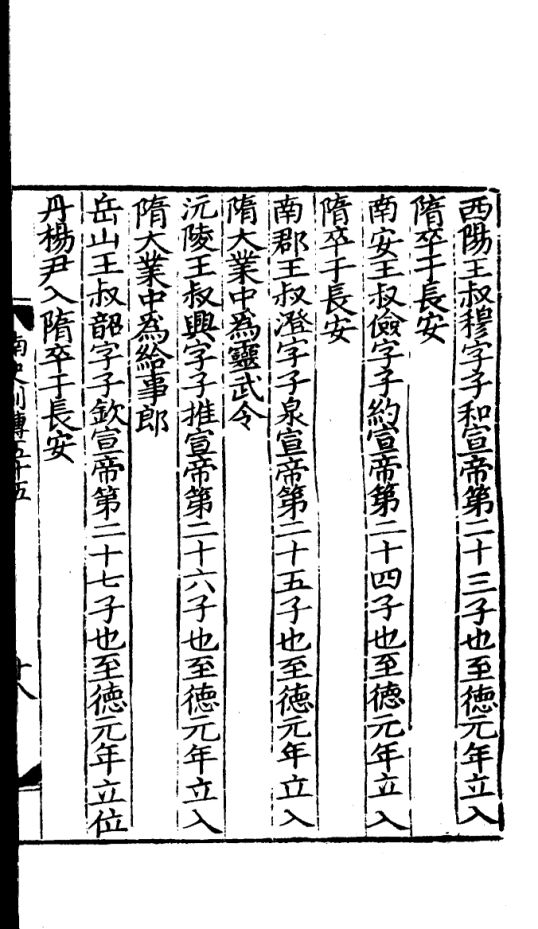 西陽王叔穆字子和宣帝第二十三子也至德元年立入
隋卒于長安
南安王叔儉字子約宣帝第二十四子也至德元年立入
隋卒于長安
南郡王叔澄字子泉宣帝第二十五子也至德元年立入
隋大業中爲靈武令
沅陵王叔興字子推宣帝第二十六子也至德元年立入
隋大業中爲給事郎
岳山王叔韶字子欽宣帝第二十七子也至德元年立位
丹楊尹入隋卒于長安
南史列傳五十五
十八